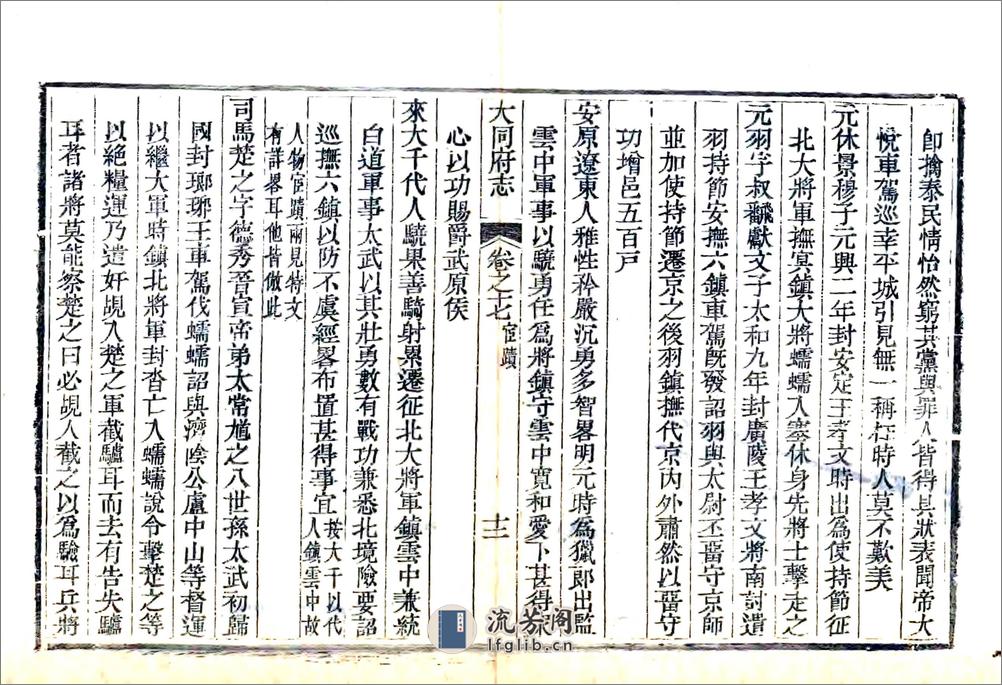 卽擒泰民情怡然窮其黨與罪人皆得具狀表聞帝大
悅車駕巡幸平城引見無一稱枉時人莫不歎美
元休景穆子元興二年封安定王孝文時出爲使持節征
北大將軍撫冥鎮大將蠕蠕入塞休身先將士擊走之
元羽字叔翻獻文子太和九年封廣陵王孝文將南討遣
羽持節安撫六鎮車駕旣發詔羽與太尉丕畱守京師
並加使持節遷京之後羽鎮撫代京內外肅然以畱守
功增邑五百戸
安原遼東人雅性矜嚴沉勇多智畧明元時爲獵郎出監
雲中軍事以驍勇任爲將鎮守雲中寬和愛下甚得衆
大同府志 卷之十七 宦蹟 十二
心以功賜爵武原侯
來大千代人驍果善騎射累遷征北大將軍鎮雲中兼統
白道軍事太武以其壯勇數有戰功兼悉北境險要詔
巡撫六鎮以防不虞經畧布置甚得事宜 按大千以代人鎮雲中故
人物宦蹟兩見特文有詳畧耳他皆倣此
司馬楚之字德秀晉宣帝弟太常馗之八世孫太武初歸
國封瑯琊王車駕伐蠕蠕詔與濟陰公盧中山等督運
以繼大軍時鎮北將軍封沓亡入蠕蠕說令擊楚之等
以絕糧運乃遣奸覘入楚之軍截驢耳而去有告失驢
耳者諸將莫能察楚之曰必覘人截之以爲驗耳兵將
流芳阁
lfglib.cn